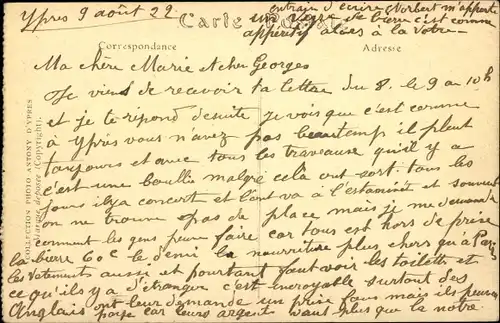 Ypres 9 août 22.
entrain d'écrire Norbert m'apporte
un verre de bière c'est comme
apperitif alors à la votre
Carte Postale
Correspondance
Adresse
Ma chère Marie et cher Georges
Je viens de recevoir ta lettre du 8. le 9 a 10h
et je te répond desuite je vois que c'est comme
à Ypres vous n'avez pas beau temp il pleut
toujours et avec tous les traveause qu'il y a
c'est une boullie malgré celà on sort. tous les
jours ilya concert et l'on va à l'estaminet et souvent
on ne trouve pas de place mais je me demande
comment les gens peuve faire car tous est hors de prix
la bierre 60c le demi la nourriture plus chers qu'a Paris
les vetements aussie et pourtant faut voir les toilette et
ce qu'ils y a d'étranger c'est incroyable surtout des
Anglais ont leur demande un prix fous mais ils peuve
paye car leurs argent vaut plus que la notre
COLLECTION PHOTO ANTONY D'YPRES
Marque déposée (Copyright).